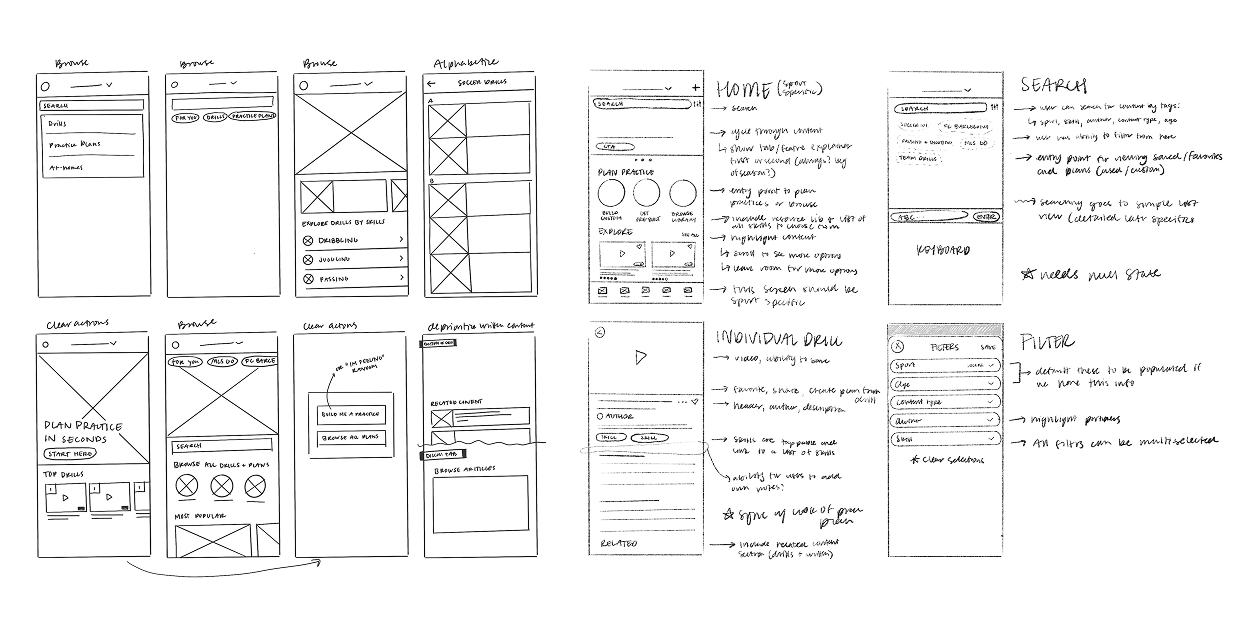 Browse
SEARCH
Drills
Practice Plans
At-Homes
Browse
FOR YOU
DRILLS
PRACTICE PLANS
Browse
EXPLORE DRILLS BY SKILLS
DRIBBLING
JUGGLING
PASSING
Alphabetize
SOCCER DRILLS
A
B
Clear actions
PLAN PRACTICE
IN SECONDS
START HERE
TOP DRILLS
Browse
FOR YOU
MLS GO
FC BARCE
SEARCH
BROWSE ALL DRILLS + PLANS
MOST POPULAR
Clear actions
OR "I'M FEELING"
RANDOM
BUILD ME A PRACTICE
BROWSE ALL PLANS
deprioritize written content
RELATED CONTENT
BROWSE ARTICLES
SEARCH
CTA
PLAN PRACTICE
BUILD
CUSTOM
BROWSE
EXPLORE
SEE ALL
HOME (sport
specific)
search
cycle through content
show tab/feature explainer
first or second (always? beg
of season?)
entry point to plan
practices or browse
include resource lib & list of
all skills to choose from
highlight content
scroll to see more options
leave room for more options
this screen should be
sport specific
SEARCH
SOCCER U1
FC BARCELONA
PASSING + SHOOTING
MLS GO
TEAM DRILLS
ABC
ENTER
KEYBOARD
SEARCH
user can search for content by tags:
sport, skill, author, content type, age
user has ability to filter from here
entry point for viewing saved/favorites
and plans (used/custom)
searching goes to simple list
view (detailed later specifics
needs null state
AUTHOR
SKILL
SKILL
RELATED
INDIVIDUAL DRILL
video, ability to save
favorite, share, create plan from
drill
header, author, description
skills are tappable and
link to a list of skills
ability for users to add
own notes?
include related content
section (drills + written)
X
FILTERS
SAVE
Sport
Age
Content type
Skill
* Clear selections
FILTER
default these to be populated if
we have this info
highlight partners
All filters can be multiselected